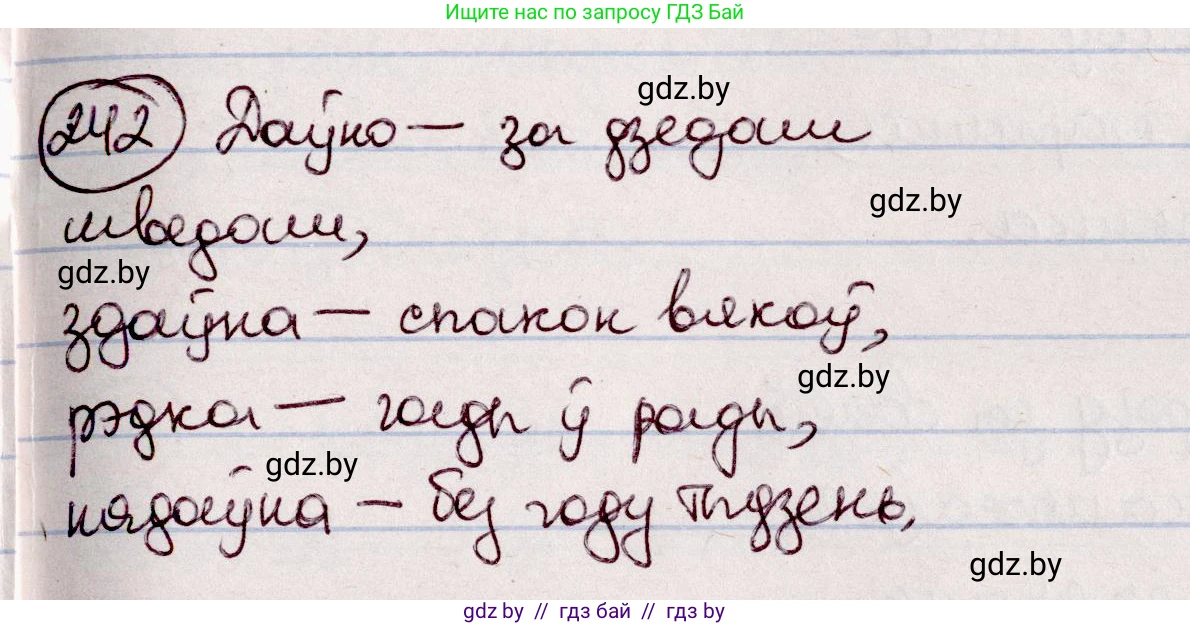 Ищите нас по запросу ГДЗ Бай
242 Даўно — за дзедам
gdz.by
шведам,
gdz.by
gdz.by
здаўна — спакон вякоў,
gdz.by
рэдка — гады ў рады,
gdz.by
нядаўна — без году тыдзень,
gdz.by
gdz by // гдз бай // гдз by